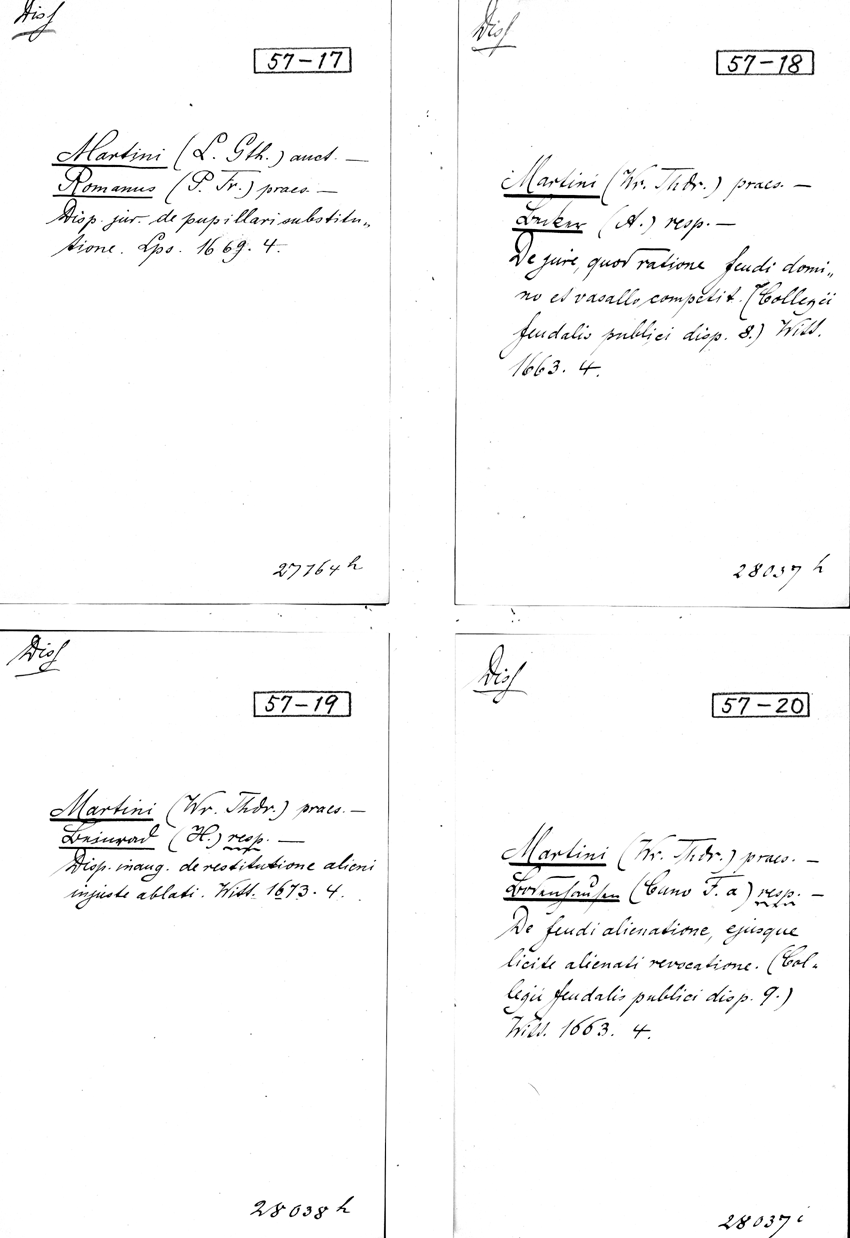 Diss
57-17
Martini (L. Gth.) auct. —
Romanus (P. Fr.) praes. —
Disp. jur. de pupillari substitu„
tione. Lps. 1669. 4.
27164 h
Diss
57-18
Martini (Wr. Thdr.) praes. —
(A.) resp. —
De jure, quod ratione feudi domi„
no et vasallo competit. (Collegii
feudalis publici disp. 8.) Witt.
1663. 4.
28037 h
Diss
57-19
Martini (Wr. Thdr.) praes. —
(H.) resp. —
Disp. inaug. de restitutione alieni
injuste ablati. Witt. 1673. 4.
28038 h
Diss
57-20
Martini (Wr. Thdr.) praes. —
Bodenhausen (Cuno F. a) resp. —
De feudi alienatione, ejusque
licite alienati revocatione. (Col-
legii feudalis publici disp. 9.)
Witt. 1663. 4.
28037 i